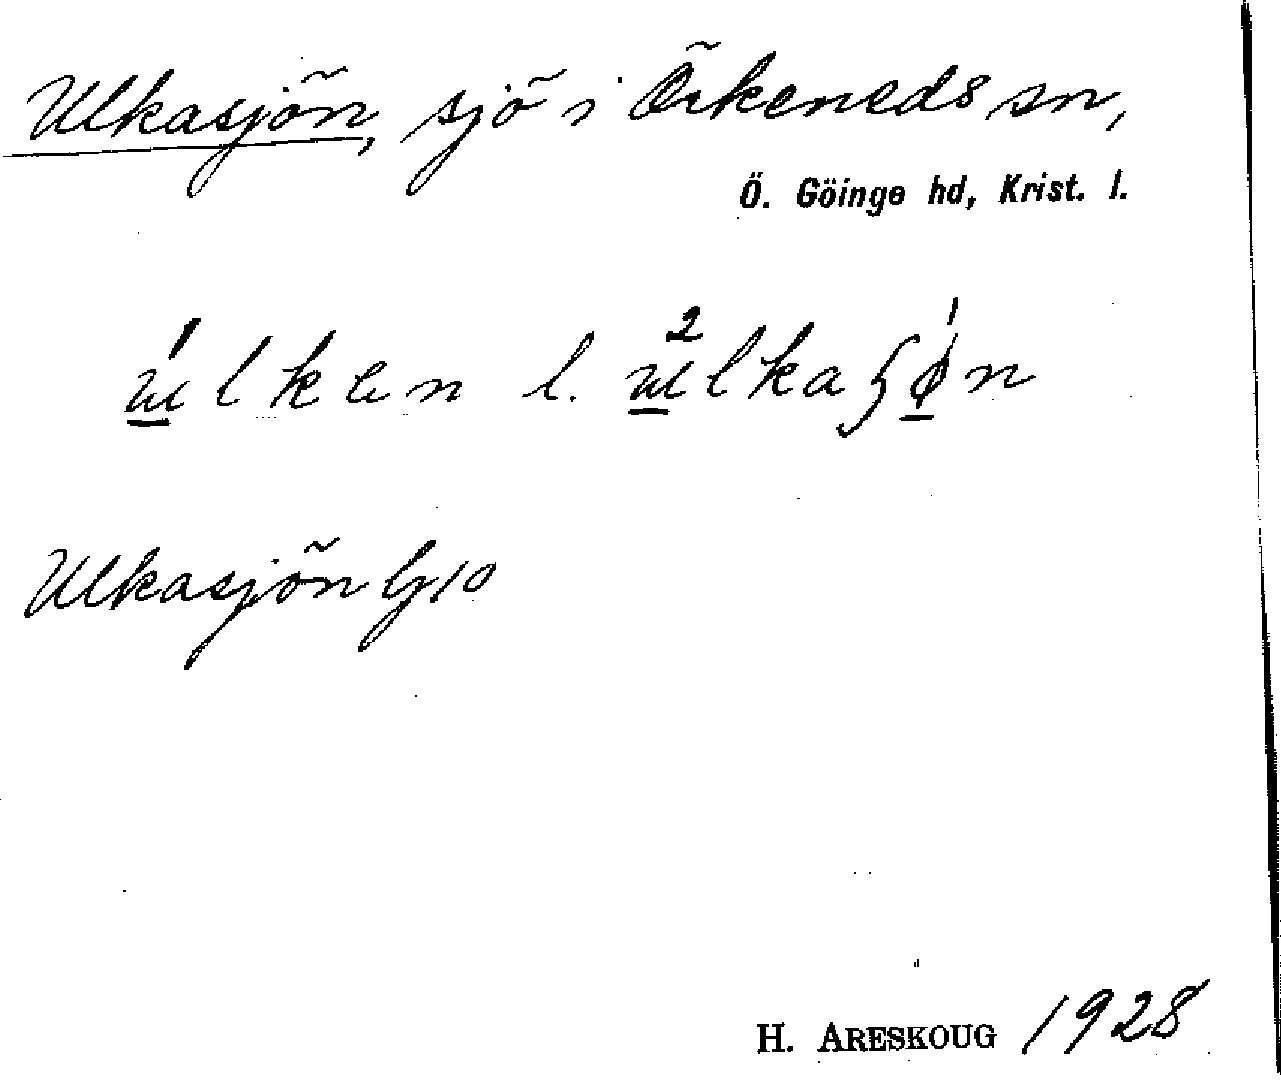 Ulkasjön, sjö i Örkeneds sn,
Ö. Göinge hd, Krist. l.
úlken l. ulkaʃøn
Ulkasjön G10
H. ARESKOUG 1928